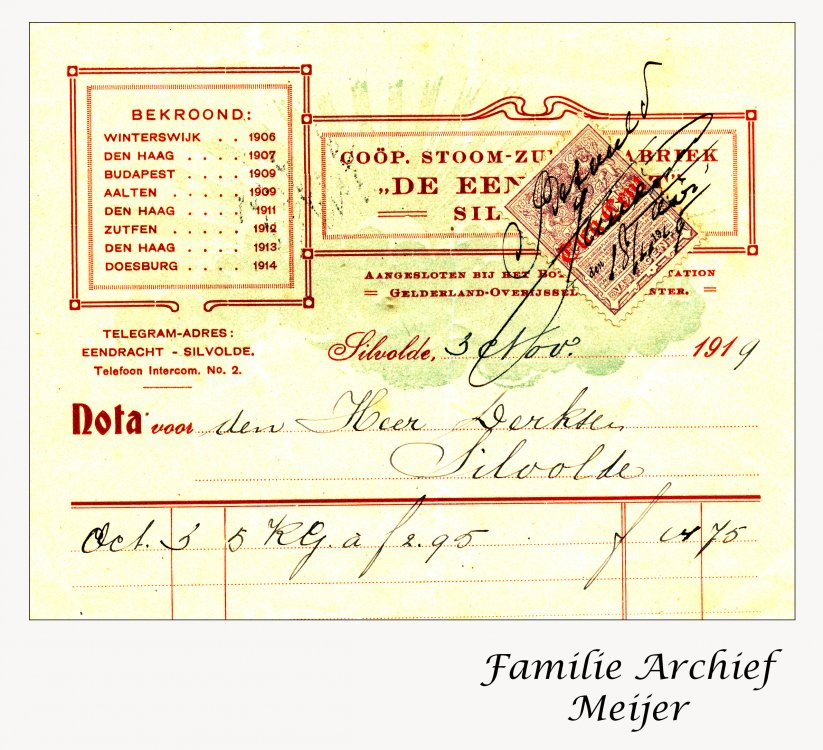 BEKROOND:
WINTERSWIJK . . 1906
DEN HAAG . . . . 1907
BUDAPEST . . . . 1909
AALTEN . . . . . 1909
DEN HAAG . . . . 1911
ZUTFEN . . . . . 1912
DEN HAAG . . . . 1913
DOESBURG . . . . 1914
COÖP. STOOM-ZU
„DE EEN
SIL
AANGESLOTEN BIJ HET
GELDERLAND-OVERIJSSEL
Betaald
TELEGRAM-ADRES:
EENDRACHT - SILVOLDE.
Telefoon Intercom. No. 2.
Silvolde, 3 Nov. 1919
Nota voor den Heer Derksen
Silvolde
Oct. 3 5 KG. a f 2.95 f 14 75
Familie Archief
Meijer